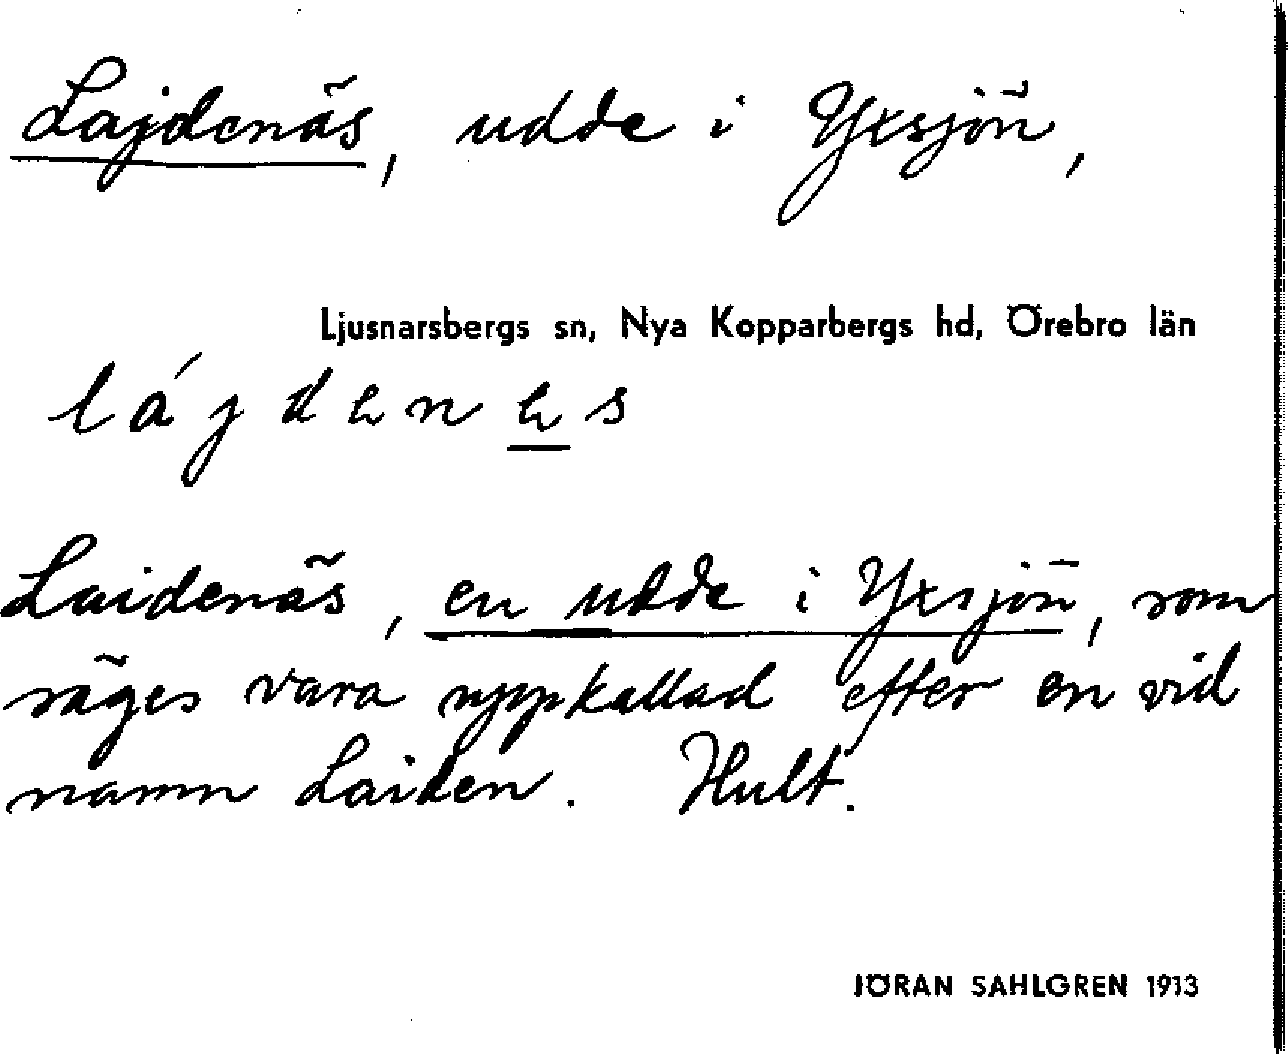 Lajdenäs, udde i Yxsjön,
Ljusnarsbergs sn, Nya Kopparbergs hd, Örebro län
lájdenes
Laidenäs, en udde i Yxsjön, som
säges vara uppkallad efter en vid
namn Laiden. Hult.
JÖRAN SAHLGREN 1913